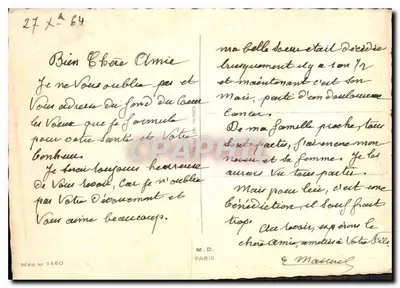 27 Xbre 64
Bien Chère Amie
Je ne Vous oublie pas et
Vous adresse du fond du Coeur
les Voeux que je formule
pour votre Santé et Votre
bonheur.
Je serai toujours heureuse
de Vous revoir, car je n'oublie
pas Votre Dévouement et
Vous aime beaucoup.
SÉRIE No 7460
M. D.
PARIS
ma belle soeur était décédée
brusquement il y a 1 an 1/2
et maintenant c'est son
Mari, parti d'un douloureux
Cancer.
De ma famille proche, tous
sont partis, J'ai encore mon
neveu et sa femme. Je les
aurais Vu tous partir.
Mais pour lui, c'est une
bénédiction, il souffrait
trop.
Au revoir, espérons le
chère Amie, amitiés à Votre Fille
CPARAMA